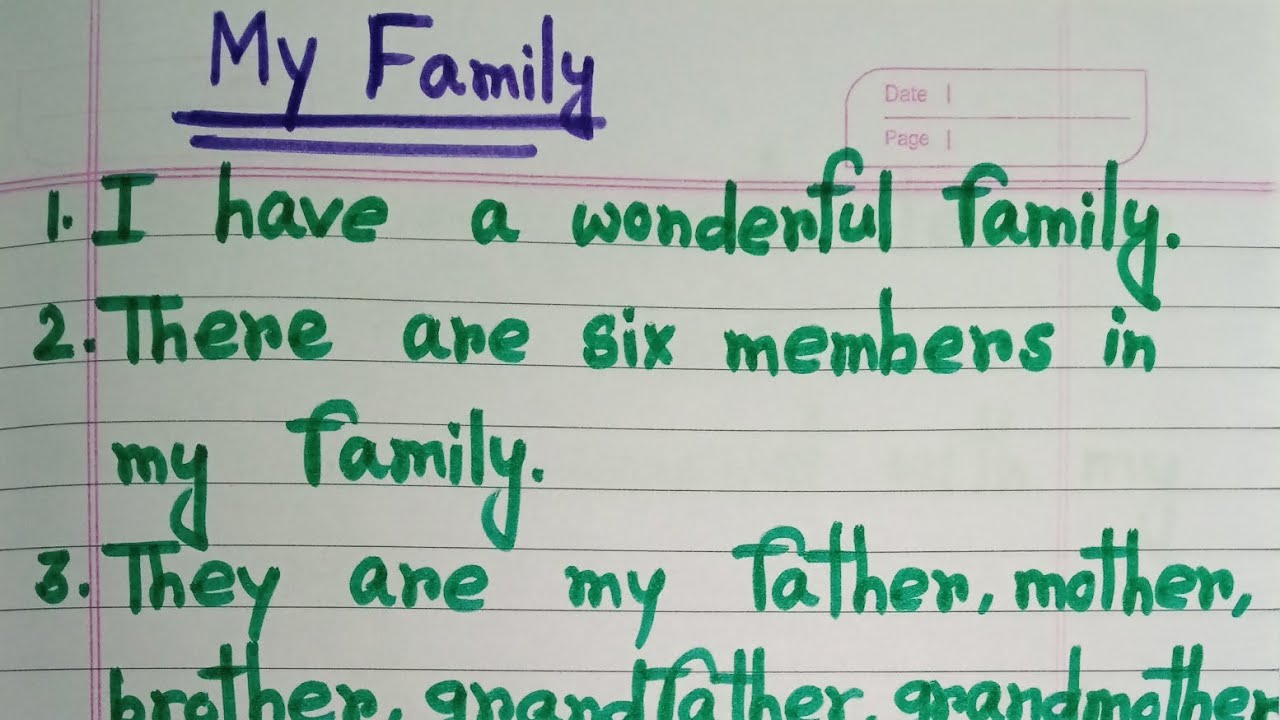 My Family
Date |
Page |
1. I have a wonderful family.
2. There are six members in
my family.
3. They are my father, mother,
brother, grandfather, grandmother